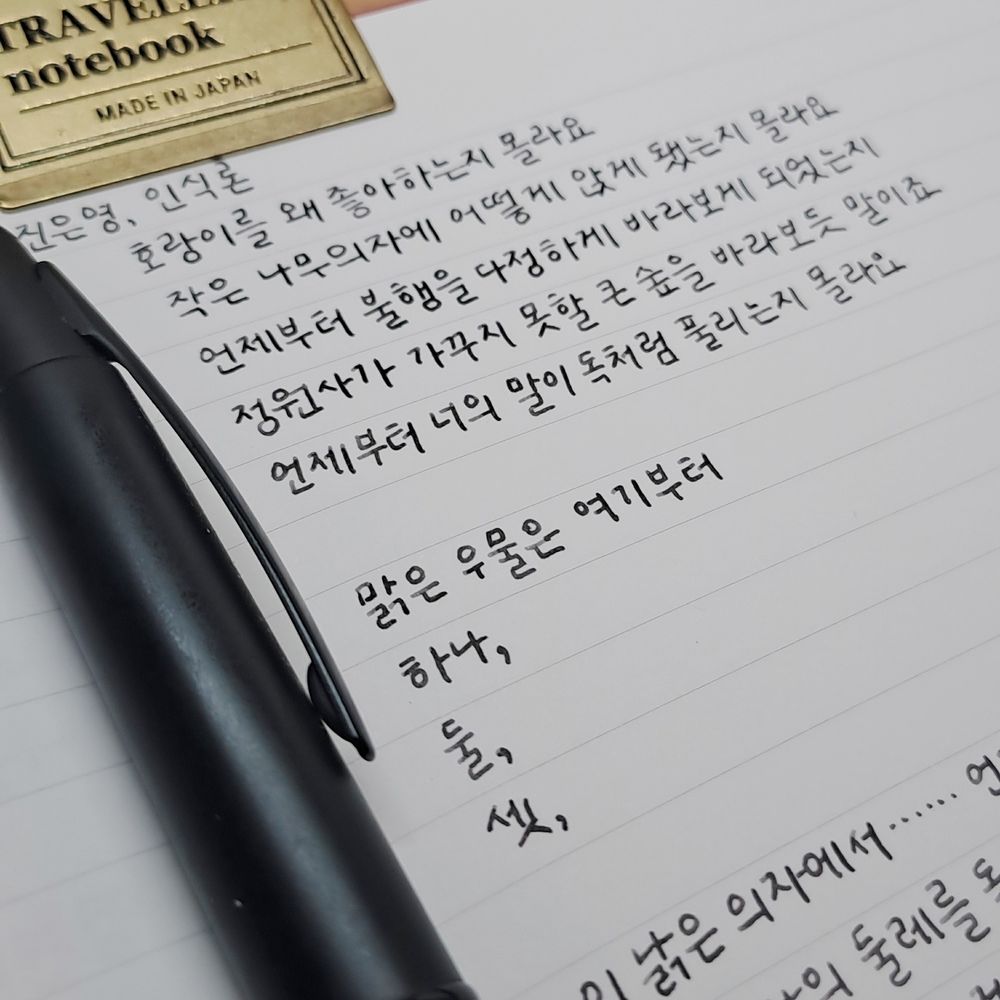 TRAVELER'S
notebook
MADE IN JAPAN
진은영, 인식론
호랑이를 왜 좋아하는지 몰라요
작은 나무의자에 어떻게 앉게 됐는지 몰라요
언제부터 불행을 다정하게 바라보게 되었는지
정원사가 가꾸지 못할 큰 숲을 바라보듯 말이죠
언제부터 너의 말이 독처럼 풀리는지 몰라요
맑은 우물은 여기부터
하나,
둘,
셋,
낡은 의자에서……
둘레를